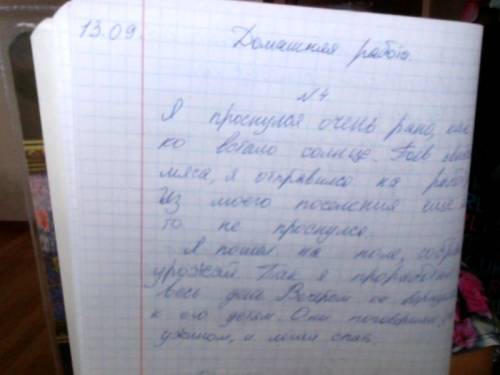 13.09.
Домашняя работа.
№4
Я проснулся очень рано, как
ко встало солнце. Поев
мяса, я отправился на рабо
Из моего поселения еще
то не проснулся.
Я пошел на поле,
урожай. Так я проработал
весь день. Вечером он
к его детям. Они поговорили
ужином, и легли спать.